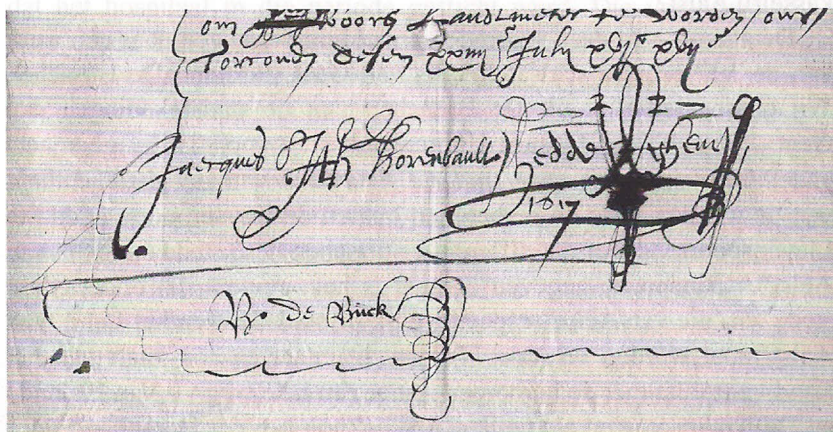 om voors Landtmeter te worden
Torcondy desen xxiiij July xvjc xvij
Jacques Horenbault heddeghem
1617
R. de Buck